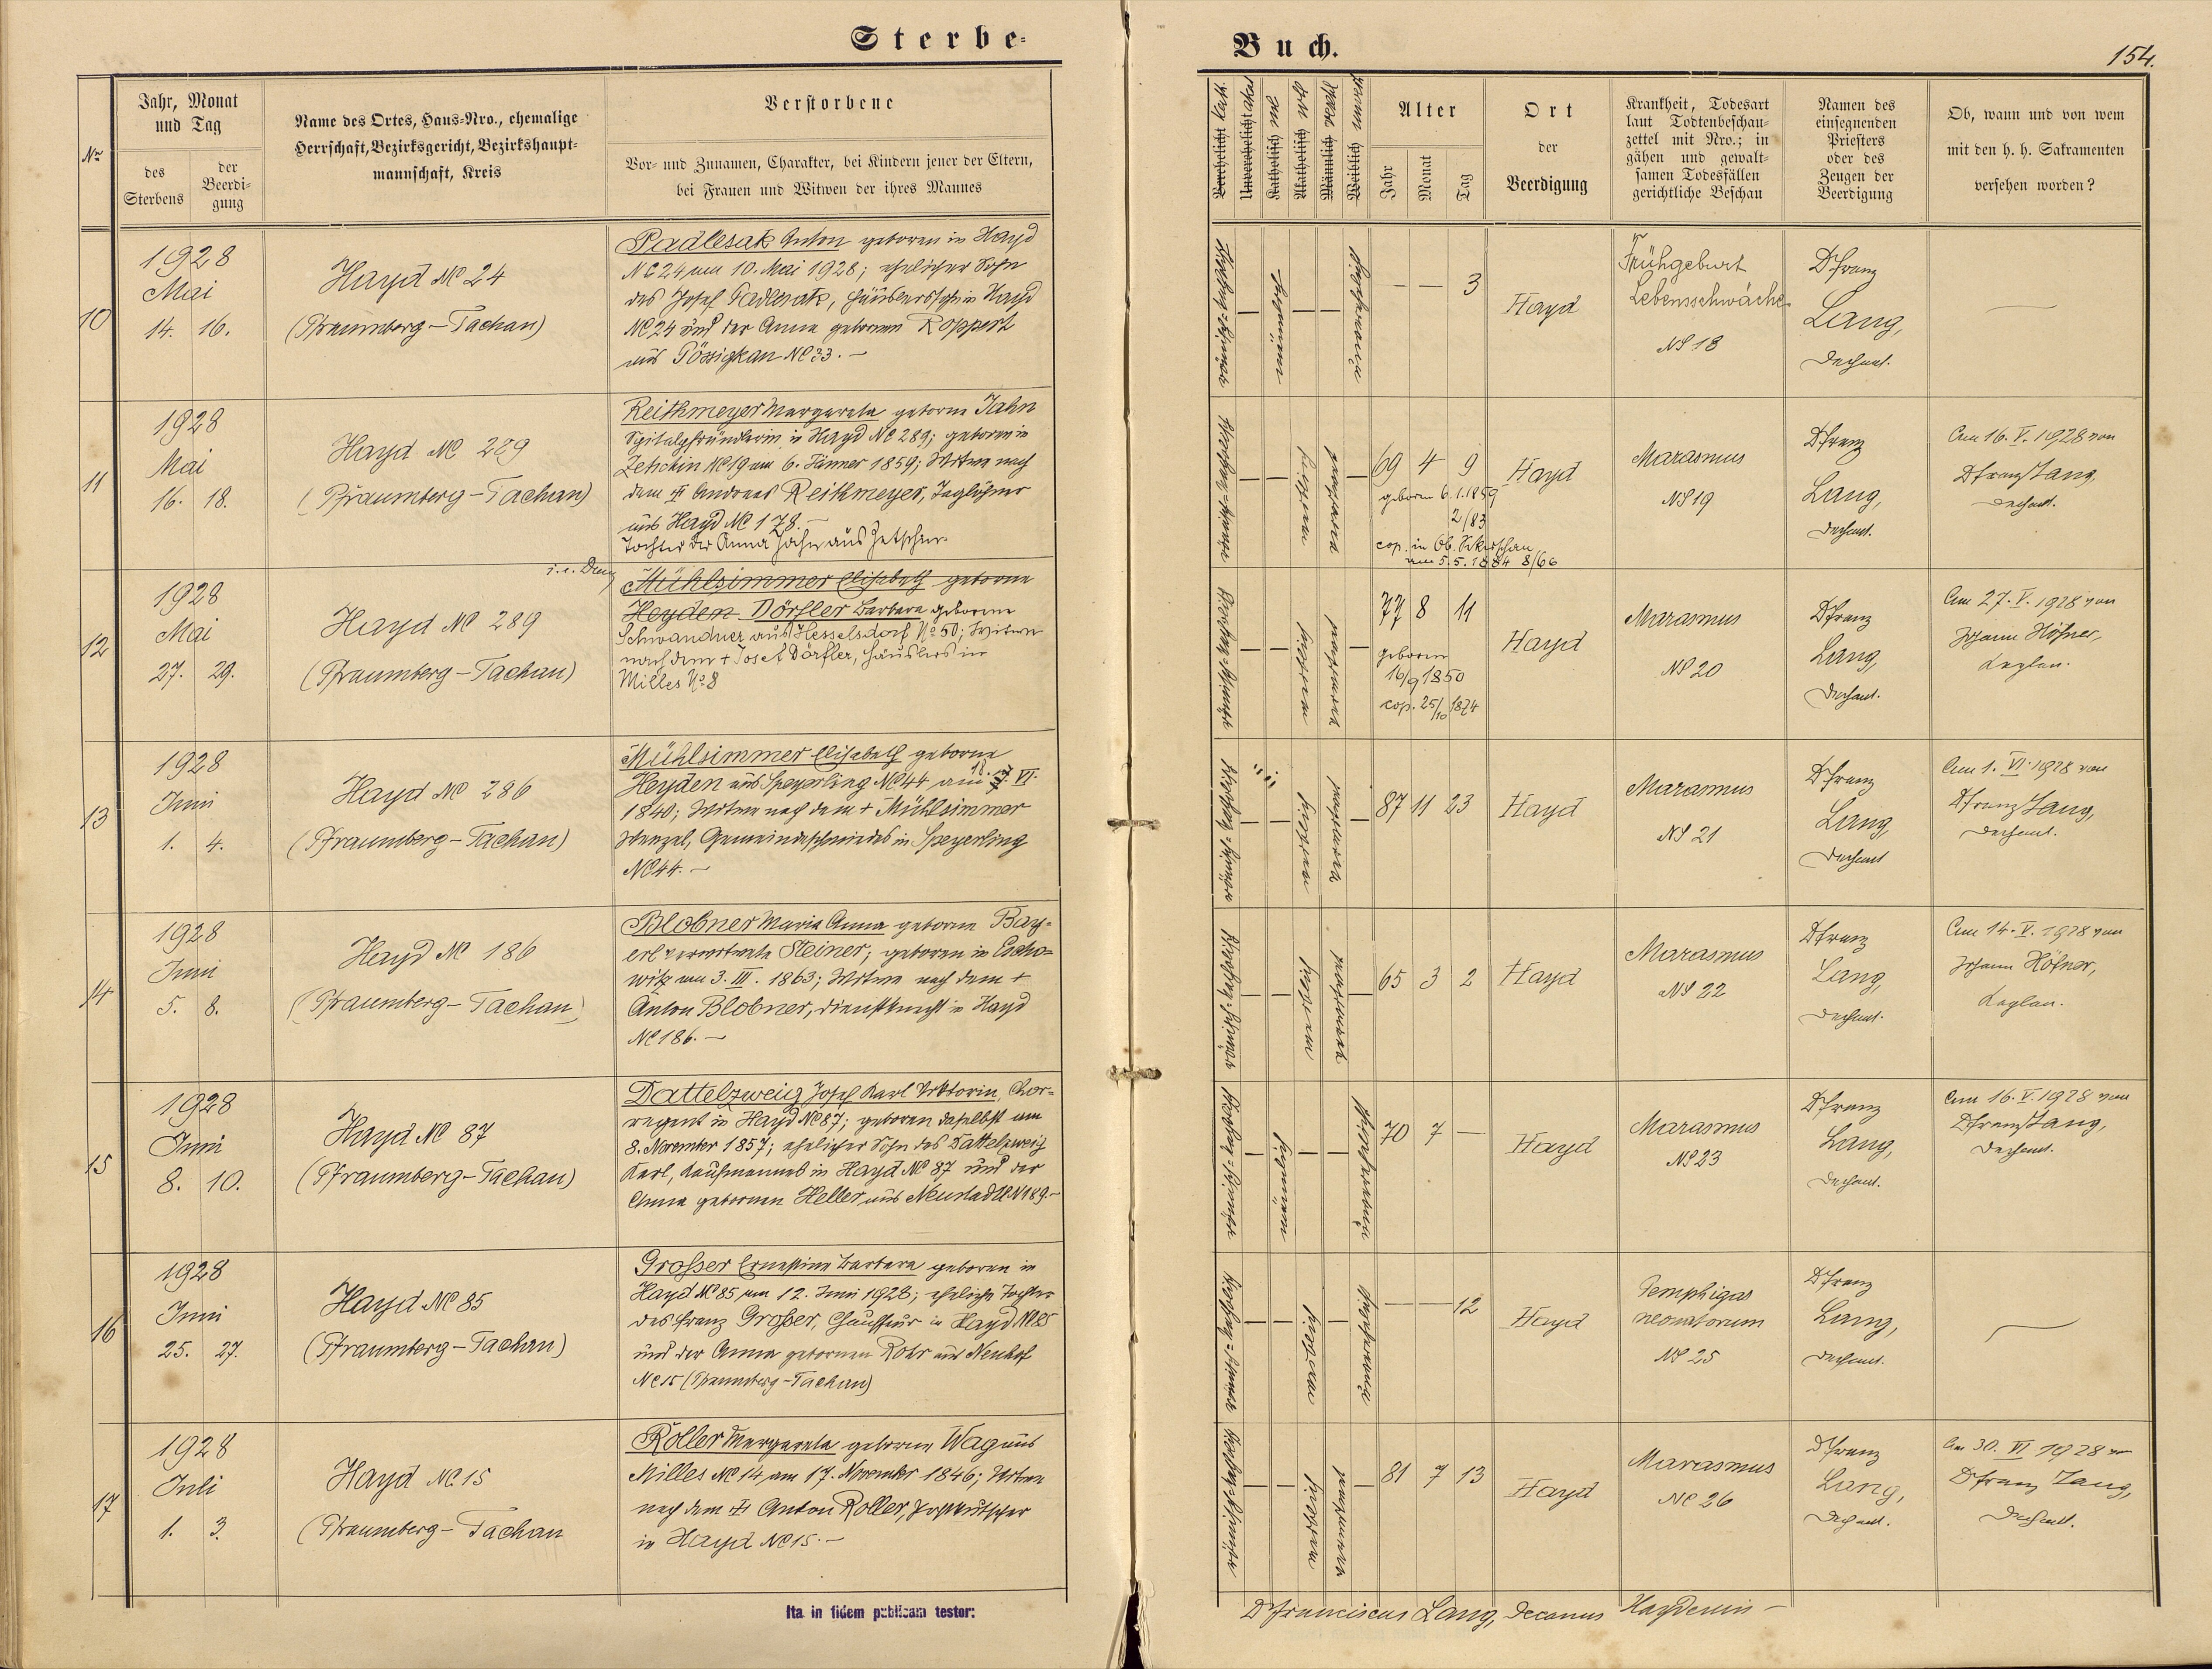 Sterbe-
Buch.
154.
Nro
Jahr, Monat
und Tag
des
Sterbens
der
Beerdi-
gung
Name des Ortes, Haus-Nro., ehemalige
Herrschaft, Bezirksgericht, Bezirkshaupt-
mannschaft, Kreis
Verstorbene
Vor- und Zunamen, Charakter, bei Kindern jener der Eltern,
bei Frauen und Witwen der ihres Mannes
Verehelicht
Unverehelicht
Katholisch
Akatholisch
Männlich
Weiblich
Alter
Jahr
Monat
Tag
Ort
der
Beerdigung
Krankheit, Todesart
laut Todtenbeschau-
zettel mit Nro.; in
gähen und gewalt-
samen Todesfällen
gerichtliche Beschau
Namen des
einsegnenden
Priesters
oder des
Zeugen der
Beerdigung
Ob, wann und von wem
mit den h. h. Sakramenten
versehen worden?
10
1928
Mai
14. 16.
Hayd NC 24
(Pfraumberg-Tachau)
Padlesak Anton geboren in Hayd
NC 24 am 10. Mai 1928; ehelicher Sohn
des Josef Padlesak, Häuslers in Hayd
NC 24 und der Anna gebornen Roppert
aus Pössigkau NC 33. —
— — 3
Hayd
Frühgeburt
Lebensschwäche
NS 18
Dr Franz
Lang,
Dechant.
—
11
1928
Mai
16. 18.
Hayd NC 289
(Pfraumberg-Tachau)
Reithmeyer Margareta geborne Jahn
Spitalpfründlerin in Hayd NC 289; geboren in
Zetschin NC 19 am 6. Jänner 1859; Witwe nach
dem + Andreas Reithmeyer, Taglöhner
aus Hayd NC 178. —
Tochter der Anna Jahn aus Zetschin.
69 4 9
geboren 6.1.1859
2/83
cop. in Ob. Sekerschan
am 5.5.1884 8/66
Hayd
Marasmus
NS 19
Dr Franz
Lang,
Dechant.
Am 16. V. 1928 von
Dr Franz Lang,
Dechant.
12
1928
Mai
27. 29.
Hayd NC 289
(Pfraumberg-Tachau)
Mühlsimmer Elisabeth geborne
Heyden Dörfler Barbara geborene
Schwandner aus Hesselsdorf No 50; Witwe
nach dem + Josef Dörfler, Häuslers in
Milles No 8
77 8 11
geboren
16/9 1850
cop. 25/10 1874
Hayd
Marasmus
NS 20
Dr Franz
Lang,
Dechant.
Am 27. V. 1928 von
Johann Höfner,
Kaplan.
13
1928
Juni
1. 4.
Hayd NC 286
(Pfraumberg-Tachau)
Mühlsimmer Elisabeth geborne
Heyden aus Speyerling NC 44 am 18. VI.
1840; Witwe nach dem + Mühlsimmer
Wenzel, Gemeindeschmiedes in Speyerling
NC 44. —
87 11 23
Hayd
Marasmus
NS 21
Dr Franz
Lang,
Dechant
Am 1. VI. 1928 von
Dr Franz Lang,
Dechant.
14
1928
Juni
5. 8.
Hayd NC 186
(Pfraumberg-Tachau)
Blobner Maria Anna geborne Bay-
erl verwitwete Steiner; geboren in Escho-
witz am 3. III. 1863; Witwe nach dem +
Anton Blobner, Dienstknecht in Hayd
NC 186. —
65 3 2
Hayd
Marasmus
NS 22
Dr Franz
Lang,
Dechant.
Am 14. V. 1928 von
Johann Höfner,
Kaplan.
15
1928
Juni
8. 10.
Hayd NC 87
(Pfraumberg-Tachau)
Dattelzweig Josef Karl Viktorin, Chor-
regent in Hayd NC 87; geboren daselbst am
8. November 1857; ehelicher Sohn des Dattelzweig
Karl, Kaufmannes in Hayd NC 87 und der
Anna gebornen Heller aus Neustadtl N 189. —
70 7 —
Hayd
Marasmus
NS 23
Dr Franz
Lang,
Dechant.
Am 16. V. 1928 von
Dr Franz Lang,
Dechant.
16
1928
Juni
25. 27.
Hayd NC 85
(Pfraumberg-Tachau)
Grosser Ernestine Barbara geboren in
Hayd NC 85 am 12. Juni 1928; eheliche Tochter
des Franz Grosser, Chauffeur in Hayd NC 85
und der Anna gebornen Rohr aus Neuhof
NC 15 (Pfraumberg-Tachau)
— — 12
Hayd
Pemphigas
neonatorum
NS 25
Dr Franz
Lang,
Dechant.
—
17
1928
Juli
1. 3.
Hayd NC 15
(Pfraumberg-Tachau
Roller Margareta geborne Wag aus
Milles NC 14 am 17. November 1846; Witwe
nach dem + Anton Roller, Postkutscher
in Hayd NC 15. —
81 7 13
Hayd
Marasmus
NC 26
Dr Franz
Lang,
Dechant.
Am 30. VI 1928 von
Dr Franz Lang,
Dechant.
Ita in fidem publicam testor:
Dr Franciscus Lang, Decanus Haydensis —